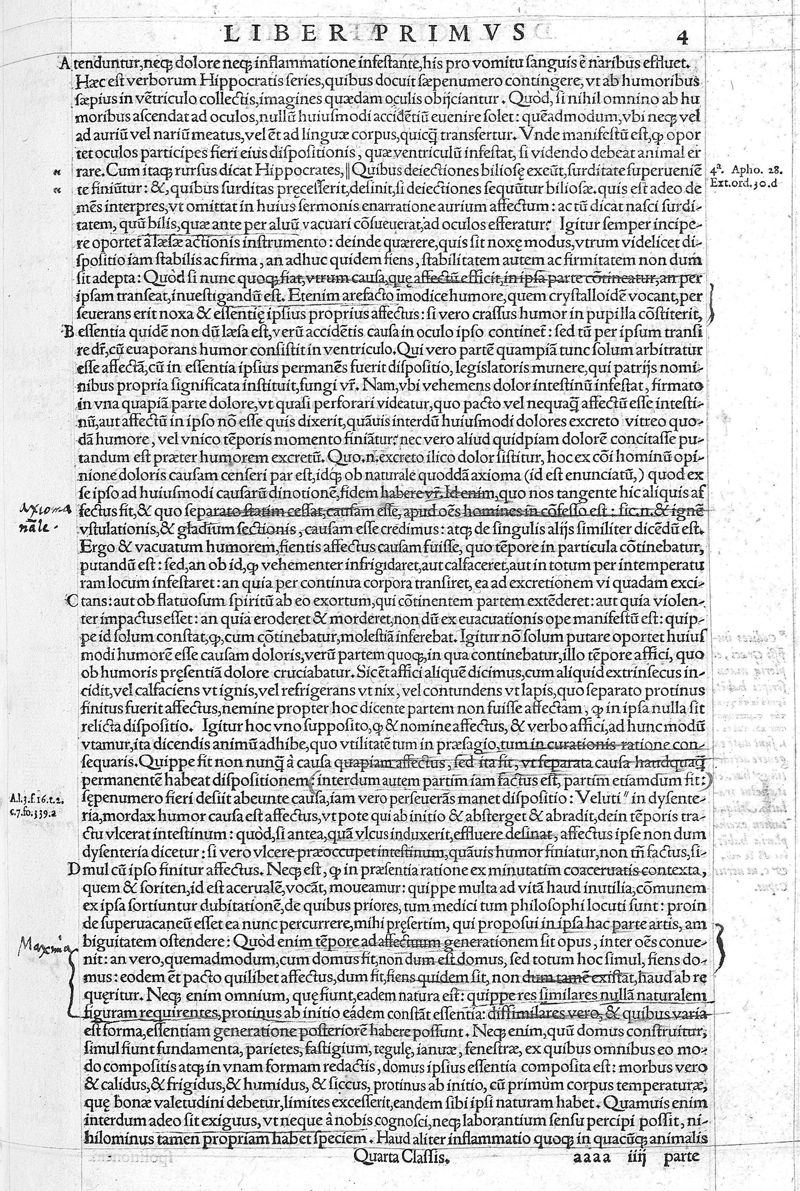 LIBER PRIMVS 4
A tenduntur,neq; dolore neq; inflammatione infestante,his pro vomitu sanguis è naribus effluet.
Hæc est verborum Hippocratis series,quibus docuit sæpenumero contingere, vt ab humoribus
sæpius in vẽtriculo collectis,imagines quædam oculis obijciantur. Quòd, si nihil omnino ab hu
moribus ascendat ad oculos,nullũ huiusmodi accidẽtiũ euenire solet: quẽadmodum,vbi neq; vel
ad auriũ vel nariũ meatus,vel ẽt ad linguæ corpus,quicq̃ transfertur. Vnde manifestũ est,ꝙ opor
tet oculos participes fieri eius dispositionis, quæ ventriculũ infestat, si videndo debeat animal er
" rare. Cum itaq; rursus dicat Hippocrates,‖Quibus deiectiones biliosę exeũt,surditate superueniẽ
4ª. Apho. 28.
Ext.ord.30.d
" te finiũtur: &,quibus surditas pręcesserit,desinit,si deiectiones sequũtur biliosæ.quis est adeo de
mẽs interpres,vt omittat in huius sermonis enarratione aurium affectum: ac tũ dicat nasci surdi-
tatem, quũ bilis,quæ ante per aluũ vacuari cõsueuerat,ad oculos efferatur? Igitur semper incipe-
re oportet à læsæ actionis instrumento: deinde quærere,quis sit noxę modus,vtrum videlicet di-
spositio iam stabilis ac firma, an adhuc quidem fiens, stabilitatem autem ac firmitatem non dum
sit adepta: Quòd si nunc quoq; fiat,vtrum causa,quę affectũ efficit,in ipsa parte cõtineatur,an per
ipsam transeat,inuestigandũ est. Etenim arefacto ĩmodice humore,quem crystalloidẽ vocant,per
seuerans erit noxa & essentię ipsius proprius affectus: si vero crassus humor in pupilla cõstiterit,
B essentia quidẽ non dũ læsa est,verũ accidẽtis causa in oculo ipso continet̃: sed tũ per ipsum transi
re dr̃,cũ euaporans humor consistit in ventriculo. Qui vero partẽ quampiã tunc solum arbitratur
esse affectã,cũ in essentia ipsius permanẽs fuerit dispositio, legislatoris munere,qui patrijs nomi-
nibus propria significata instituit,fungi vr̃. Nam,vbi vehemens dolor intestinũ infestat, firmato
in vna quapiã parte dolore,vt quasi perforari videatur,quo pacto vel nequaq̃ affectũ esse intesti-
nũ,aut affectũ in ipso nõ esse quis dixerit,quãuis interdũ huiusmodi dolores excreto vitreo quo-
dã humore, vel vnico tẽporis momento finiãtur? nec vero aliud quidpiam dolorẽ concitasse pu-
tandum est præter humorem excretũ. Quo.n.excreto ilico dolor sistitur, hoc ex cõi hominũ opi-
nione doloris causam censeri par est,idq; ob naturale quoddã axioma (id est enunciatũ,) quod ex
se ipso ad huiusmodi causarũ dinotionẽ,fidem habere vr̃. Id enim,quo nos tangente hic aliquis af
Axioma
nãle.
fectus fit,& quo separato statim cessat,causam esse, apud oẽs homines in cõfesso est: sic.n.& ignẽ
vstulationis,& gladium sectionis, causam esse credimus: atq; de singulis alijs similiter dicẽdũ est.
Ergo & vacuatum humorem,fientis affectus causam fuisse, quo tẽpore in particula cõtinebatur,
putandũ est: sed,an ob id,ꝙ vehementer infrigidaret,aut calfaceret,aut in totum per intemperatu
ram locum infestaret: an quia per continua corpora transiret, ea ad excretionem vi quadam exci-
C tans: aut ob flatuosum spiritũ ab eo exortum,qui cõtinentem partem extẽderet: aut quia violen-
ter impactus esset: an quia eroderet & morderet,non dũ ex euacuationis ope manifestũ est: quip-
pe id solum constat,ꝙ,cum cõtinebatur,molestiã inferebat. Igitur nõ solum putare oportet huius
modi humorẽ esse causam doloris,verũ partem quoq;,in qua continebatur,illo tẽpore affici, quo
ob humoris pręsentiã dolore cruciabatur. Sic ẽt affici aliquẽ dicimus,cum aliquid extrinsecus in-
cidit,vel calfaciens vt ignis,vel refrigerans vt nix, vel contundens vt lapis,quo separato protinus
finitus fuerit affectus,nemine propter hoc dicente partem non fuisse affectam, ꝙ in ipsa nulla sit
relicta dispositio. Igitur hoc vno supposito,ꝙ & nomine affectus, & verbo affici,ad hunc modũ
vtamur,ita dicendis animũ adhibe,quo vtilitatẽ tum in præsagio,tum in curationis ratione con-
sequaris. Quippe fit non nunq̃ à causa quapiam affectus, sed ita fit, vt separata causa haudquaq̃
permanentẽ habeat dispositionem: interdum autem partim iam factus est, partim etiamdum fit:
A.l.3.f.16.t.2.
c.7.fo.339.a
sępenumero fieri desiit abeunte causa,iam vero perseuerãs manet dispositio: Veluti " in dysente-
ria,mordax humor causa est affectus,vt pote qui ab initio & absterget & abradit,dein tẽporis tra-
ctu vlcerat intestinum: quòd,si antea,quã vlcus induxerit,effluere desinat, affectus ipse non dum
dysenteria dicetur: si vero vlcere præoccupet intestinum,quãuis humor finiatur,non tñ factus,si-
D mul cũ ipso finitur affectus. Neq; est, ꝙ in præsentia ratione ex minutatim coaceruatis contexta,
quem & soriten,id est acerualẽ,vocãt, moueamur: quippe multa ad vitã haud inutilia,cõmunem
ex ipsa sortiuntur dubitationẽ,de quibus priores,tum medici tum philosophi locuti sunt: proin
de superuacaneũ esset ea nunc percurrere,mihi pręsertim, qui proposui in ipsa hac parte artis, am
Maxĩa
biguitatem ostendere: Quòd enim tẽpore ad affectuum generationem sit opus, inter oẽs conue-
nit: an vero,quemadmodum,cum domus fit,non dum est domus, sed totum hoc simul, fiens do-
mus: eodem ẽt pacto quilibet affectus,dum fit,fiens quidem sit, non dum tamẽ existat,haud ab re
quęritur. Neq; enim omnium, quę fiunt,eadem natura est: quippe res similares nullã naturalem
figuram requirentes,protinus ab initio eãdem constãt essentia: dissimilares vero, & quibus varia
est forma,essentiam generatione posteriorẽ habere possunt. Neq; enim,quũ domus construitur,
simul fiunt fundamenta, parietes, fastigium, tegulę, ianuæ, fenestræ, ex quibus omnibus eo mo-
do compositis atq; in vnam formam redactis, domus ipsius essentia composita est: morbus vero
& calidus,& frigidus,& humidus, & siccus, protinus ab initio, cũ primùm corpus temperaturæ,
quę bonæ valetudini debetur,limites excesserit,eandem sibi ipsi naturam habet. Quamuis enim
interdum adeo sit exiguus, vt neque à nobis cognosci,neq; laborantium sensu percipi possit, ni-
hilominus tamen propriam habet speciem. Haud aliter inflammatio quoq; in quacũq; animalis
Quarta Classis. aaaa iiij parte